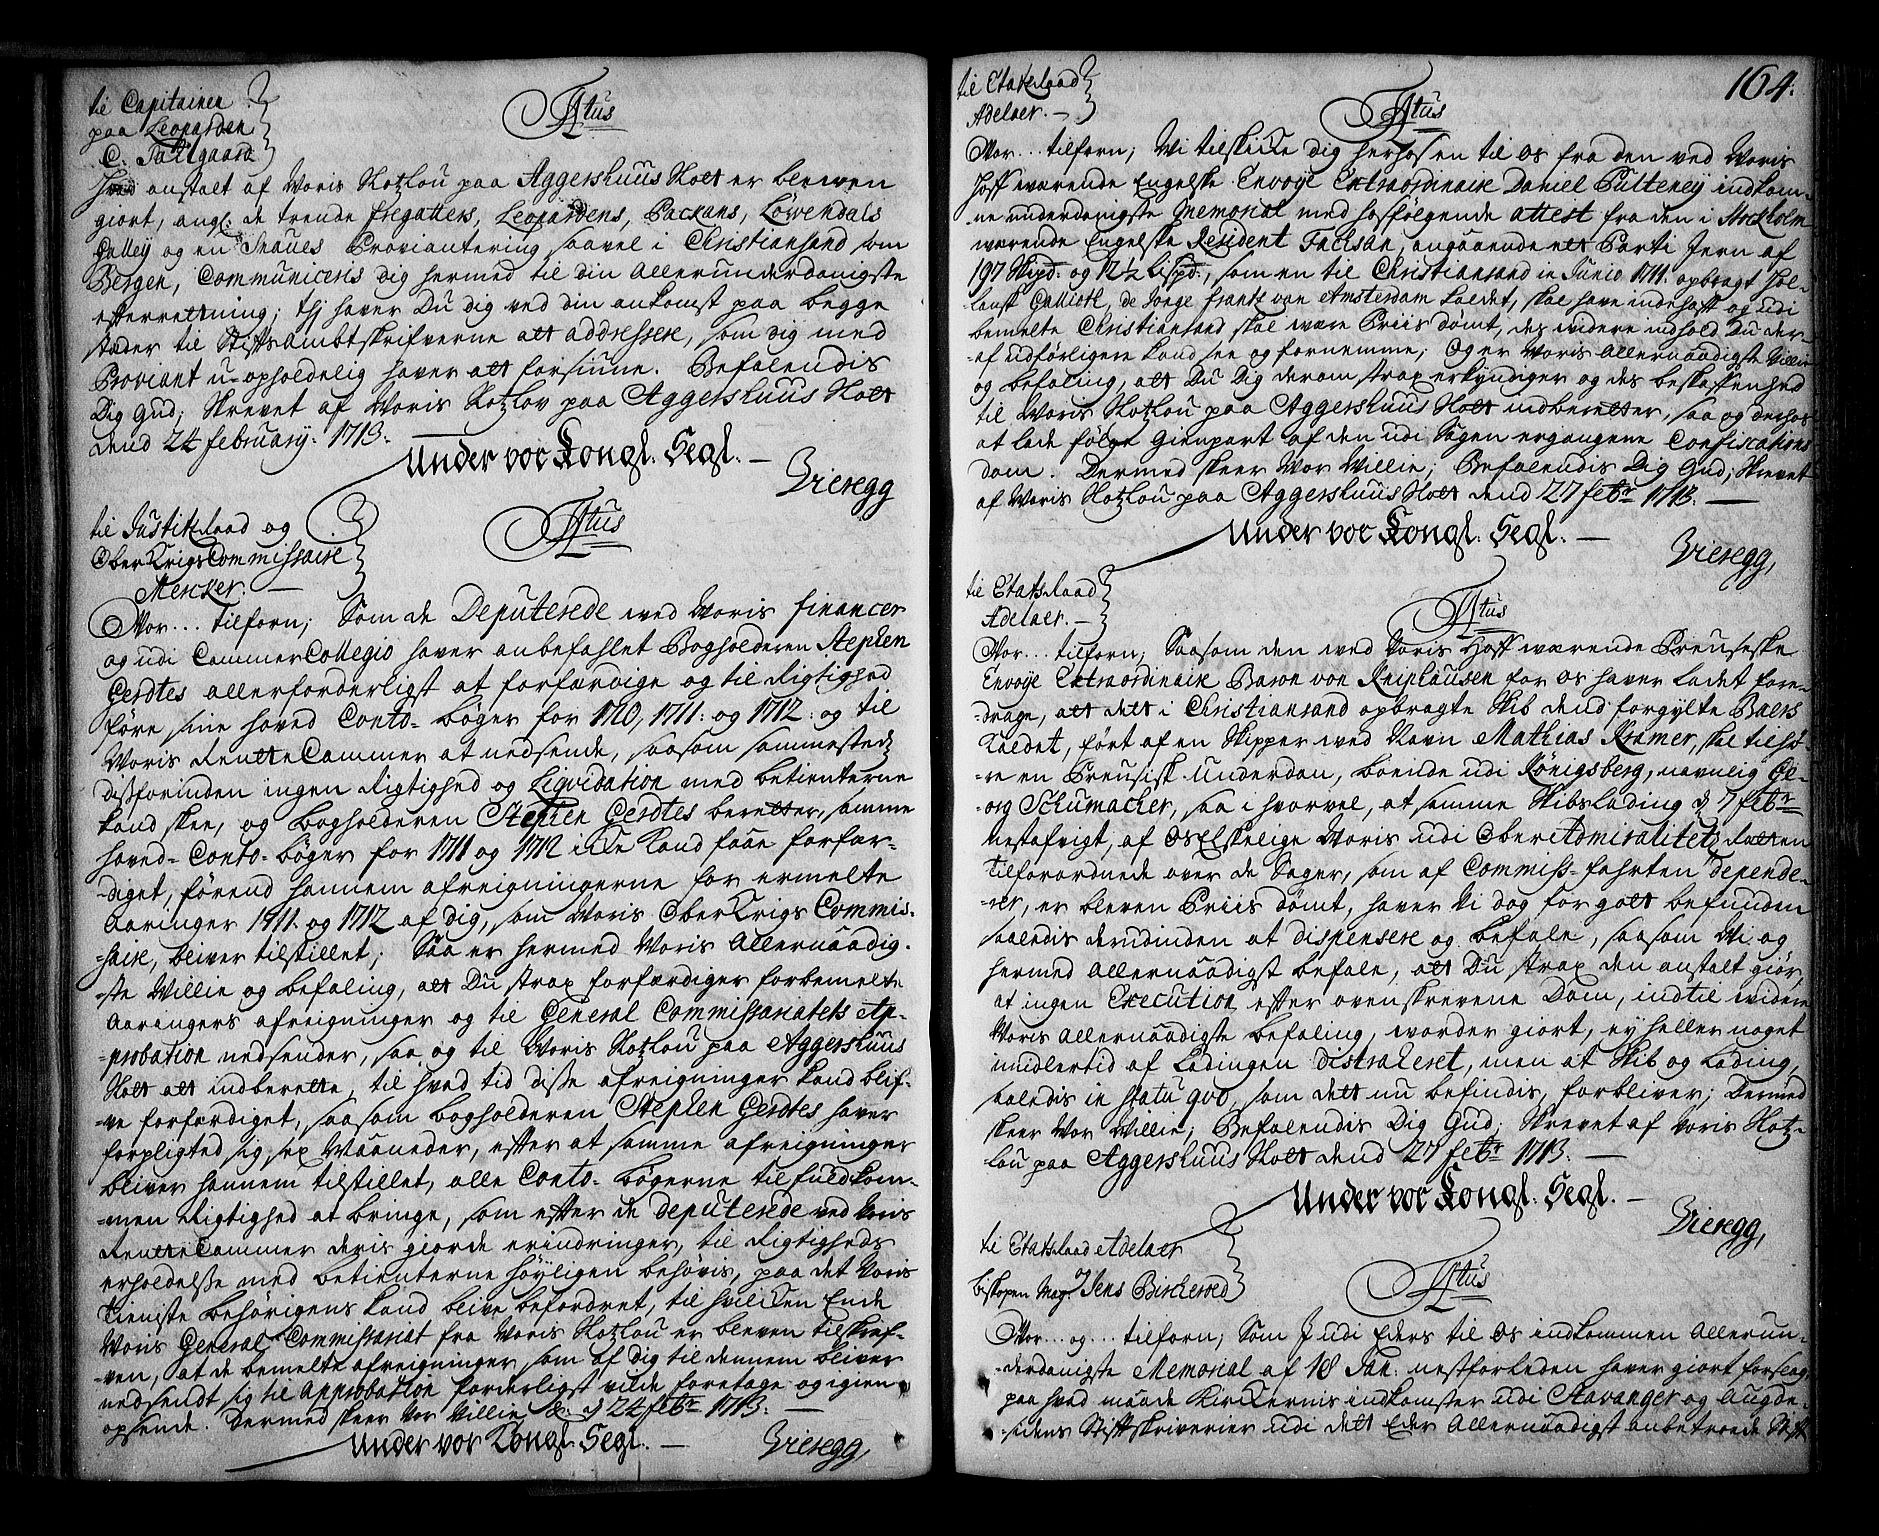 til Capitainen
paa Leoparden
C. Paulgaard
Ttus
Hvad anstalt af Voris Slotzlou paa Aggershuus Slott er blewen
giort, angl: de trende fregatters, Leopardens, Packans, Löwendals
Galley og en Snaues Proviantering saavel i Christiansand som
Bergen, Communiceris dig hermed til din Allerunderdanigste
efterretning; thj haver Du dig ved din ankomst paa begge
stæder til Stiftsambtskrifverne att addressere, som dig med
Proviant u-opholdelig haver att forsiune. Befalendis
Dig Gud; Skrevet af Voris Slotzlov paa Aggershuus Slott
dend 24 february: 1713.
Under vor Kongl. Segl. —
Vieregg
til Justitzraad og
Ober Krigs Commissaire
Mercker. —
Ttus
Vor... tilforn; Som de Deputerede wed Voris financer
og udi CammerCollegio haver anbefahlet Bogholderen Stephen
Gerdtes allerforderligst at forfærdige og til Rigtighed
före sine hoved Conto- böger for 1710, 1711: og 1712: og til
Voris RentteCammer at nedsende, saasom sammestedz
dessforinden ingen Rigtighed og Liqvidation med betienterne
kand skee, og bogholderen Stephen Gerdtes beretter, samme
hoved- Conto- böger for 1711 og 1712 icke kand faae forfær-
-diget, förend hannem afreigningerne for ermelte
Aaringer 1711. og 1712 af dig, som Voris Ober Krigs Commis-
-saire, bliver tilstillet; Saa er hermed Voris Allernaadig-
-ste Willie og befaling, att Du strax forfærdiger forbemelte
Aarangers afreigninger og til General Commissariatets Ap-
-probation nedsender, saa og til Voris Slotzlou paa Aggershuus
Slott att indberette, til hvad tid disse afreigninger kand blif-
-ve forfærdiget, saasom bogholderen Stephen Gerdtes haver
forpligted sig sex Maaneder, efter at samme afreigninger
bliver hannem tilstillet, alle Conto- bögerne til fuldkom-
-men Rigtighed at bringe, som efter de deputerede ved Voris
RentteCammer deris giorde erindringer, til Rigtigheds
erholdelsse med betienterne höyligen behövis, paa det Voris
Tieniste behörigens kand blive befordret, til hvilcken Ende
Voris General Commissariat fra Voris Slotzlou er bleven tilskref-
-ven, at de bemelte afreigninger, som af dig til dennem bliver
nedsendt sig til Approbation forderligst vilde foretage og igien
opsende. Dermed skeer Vor Villie &c. d 24 febr 1713. —
Under vor Kongl. Segl. —
Vieregg,
164.
til Etatsraad
Adelaer. —
Ttus
Vor... tilforn; Vi tilskicke dig herhos en til os fra den ved Voris
Hoff wærende Engelske Envoye Extraordinaire Daniel Pulteney indkom-
ne underdanigste Memorial med hosfölgende attest fra den i Stockholm
wærende Engelske Resident Jackson, angaaende ett Parti Jern af
197 Skpd: og 12½ Lispd:, som en til Christiansand in Junio 1711. opbragt Hol-
lansk Galliote, de Jonge frantz van Amsterdam kaldet, skal have indehafft og udi
bemelte Christiansand skal være Priis dömt, des widere indhold Du der-
-af udförligere kand see og fornemme; Og er Voris Allernaadigste Villie
og befaling, att Du Dig derom strax erkyndiger og des beskaffenhed
til Voris Slotzlou paa Aggershuus Slott indberetter, saa og derhos
at lade fölge Gienpart af den udi Sagen ergangene Confiscations
dom. Dermed skeer Vor Willie; Befalendis Dig Gud; Skrevet
af Voris Slotzlou paa Aggershuus Slott dend 27 febr 1713. —
Under vor Kongl. Segl. —
Vieregg,
til Etatsraad
Adelaer. —
Ttus
Vor... tilforn; Saasom den wed Voris Hoff wærende Preuseske
Envoye Extraordinaire Baron von Kniphausen for os haver ladet fore-
-drage, att dett i Christiansand opbragte Skib dend forgylte Baers
kaldet, fört af en Skipper wed Navn Mathias Kramer, skal tilhö-
-re en Preusisk underdan, boende udi Königsberg, navnlig Ge-
-org Schumacher, saa i hvorvel, at samme Skibslading d 7 febr
nestafvigt, af Os Elskelige Voris udi OberAdmiralitetz Retten
tilforordnede over de Sager, som af Commiss-fahrten depende-
-rer, er bleven Priis dömt, haver Vi dog for gott befunden
saaledis derudinden at dispensere og befale, saasom Vi og
hermed Allernaadigst befale, att Du strax den anstalt giör,
at ingen Execution efter ovenskrevene Dom, indtil widere
Voris Allernaadigste befaling, worder giort, ey heller noget
midlertid af Ladingen distraheret, men at Skib og Lading,
saaledis in statu qvo, som dett nu befindis, forbliver; Dermed
skeer Vor Willie; Befalendis Dig Gud; Skrevet af Voris Slotz-
lou paa Aggershuus Slott dend 27 febr 1713. —
Under vor Kongl. Segl. —
Vieregg,
til Etatsraad Adelaer
og
biskopen Mag: Jens Bircherod
Ttus
Vor... og... tilforn; Som J udi Eders til Os indkommen Allerun-
-derdanigste Memorial af 18 Jan: nestforleden haver giort forslag,
paa hvad maade Kirckernis indkomster udi Stavanger og Augde-
-sidens Stiftskriverier udi dett Eder Allernaadigst anbetroede Stift